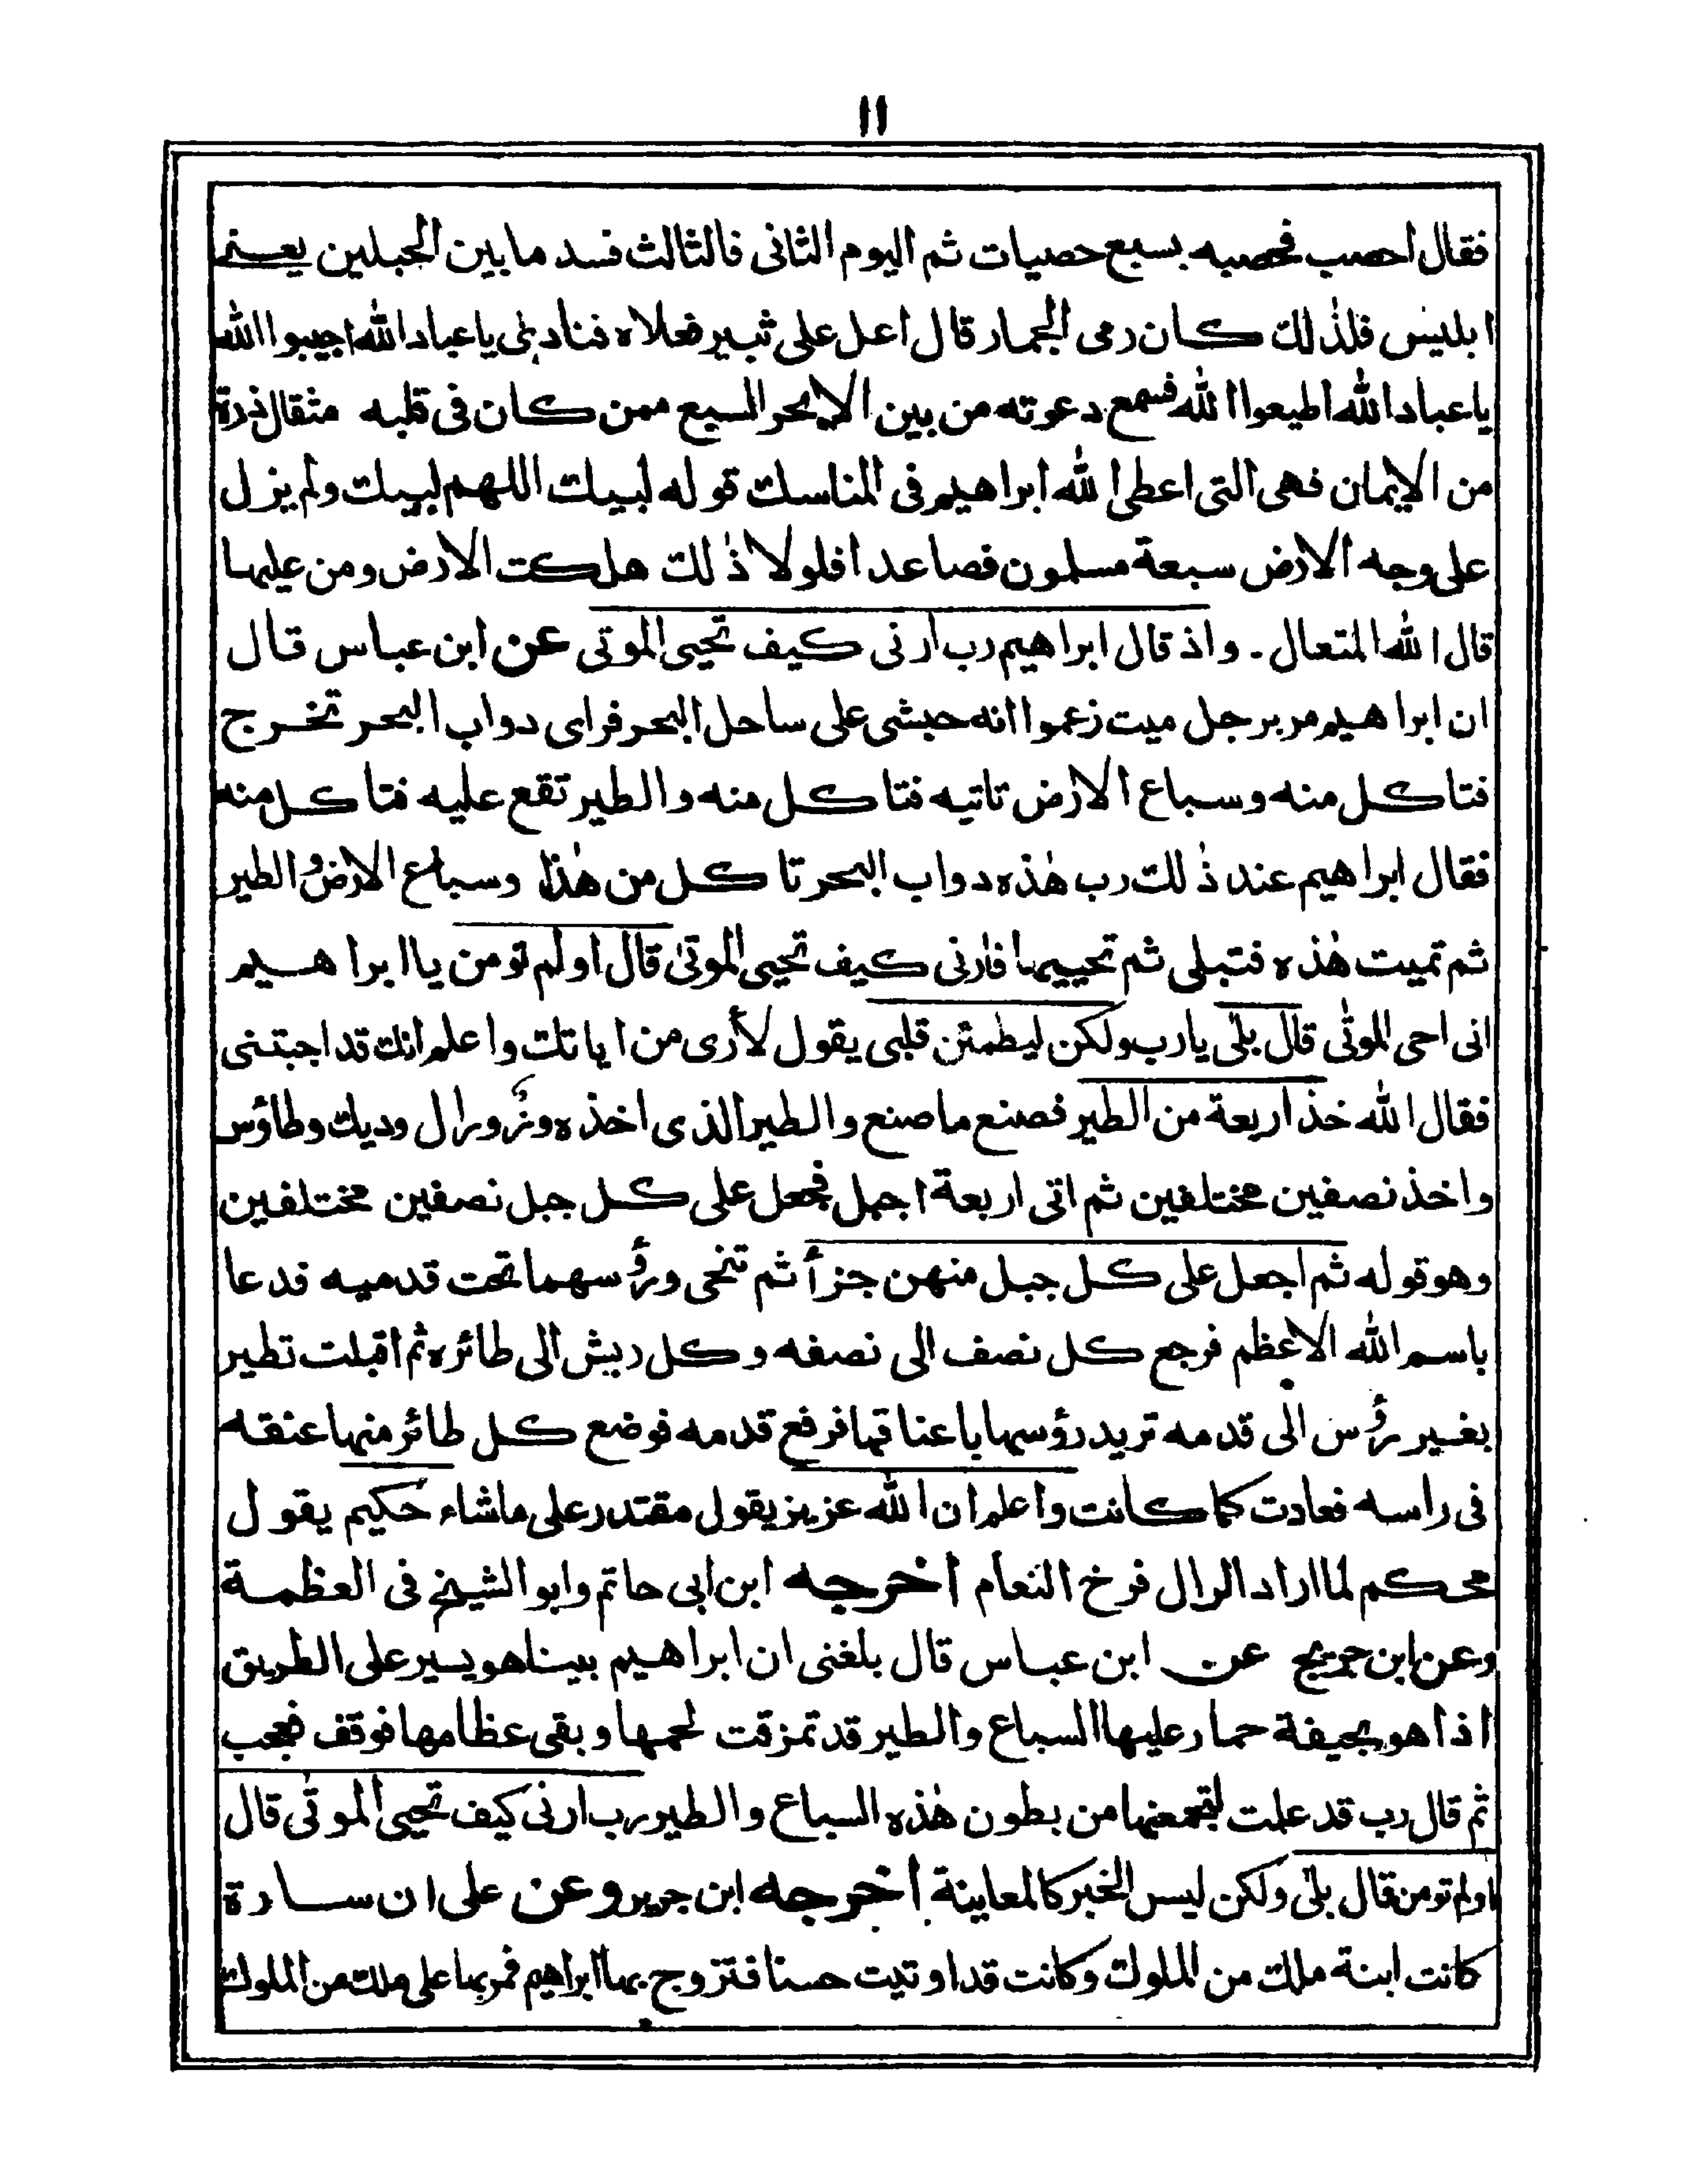 ١١
فقال احصب فحصبه بسبع حصيات ثم اليوم الثانى فالثالث فسد ما بين الجبلين يعنى
ابليس فلذٰلك كان رمى الجمار قال اعل على ثبير فعلاه فنادىٰ يا عباد الله اجيبوا الله
يا عباد الله اطيعوا الله فسمع دعوته من بين الابحر السبع ممن كان فى قلبه مثقال ذرة
من الايمان فهى التى اعطى الله ابراهيم فى المناسك قوله لبيك اللهم لبيك ولم يزل
على وجه الارض سبعة مسلمون فصاعدا فلولا ذٰلك هلكت الارض ومن عليها
قال الله المتعال ـ واذ قال ابراهيم رب ارنى كيف تحيى الموتى عن ابن عباس قال
ان ابراهيم مر برجل ميت زعموا انه حبشى على ساحل البحر فراى دواب البحر تخرج
فتاكل منه وسباع الارض تاتيه فتاكل منه والطير تقع عليه فتاكل منه
فقال ابراهيم عند ذٰلك رب هٰذه دواب البحر تاكل من هٰذا وسباع الارض والطير
ثم تميت هٰذه فتبلى ثم تحييها فارنى كيف تحيى الموتىٰ قال اولم تومن يا ابراهيم
انى احى الموتٰى قال بلٰى يا رب ولكن ليطمئن قلبى يقول لأرى من اياتك واعلم انك قد اجبتنى
فقال الله خذ اربعة من الطير فصنع ما صنع والطير الذى اخذه وزٌ ورال وديك وطاؤس
واخذ نصفين مختلفين ثم اتى اربعة اجبل فجعل على كل جبل نصفين مختلفين
وهو قوله ثم اجعل على كل جبل منهن جزأ ثم تنحى ورؤسهما تحت قدميه فدعا
باسم الله الاعظم فرجع كل نصف الى نصفه وكل ريش الى طائره ثم اقبلت تطير
بغير رؤس الى قدمه تريد رؤسها باعناقها فرفع قدمه فوضع كل طائر منها عنقه
فى راسه فعادت كما كانت واعلم ان الله عزيز يقول مقتدر على ما شاء حكيم يقول
محكم لما اراد الرال فرخ النعام اخرجه ابن ابى حاتم وابو الشيخ فى العظمة
وعن ابن جريج عن ابن عباس قال بلغنى ان ابراهيم بينا هو يسير على الطريق
اذا هو بجيفة حمار عليها السباع والطير قد تمزقت لحمها وبقى عظامها فوقف فعجب
ثم قال رب قد علمت لتجمعنها من بطون هٰذه السباع والطير رب ارنى كيف تحيى الموتٰى قال
اولم تومن قال بلٰى ولكن ليس الخبر كالمعاينة اخرجه ابن جرير وعن على ان سارة
كانت ابنة ملك من الملوك وكانت قد اوتيت حسنا فتزوج بها ابراهيم فمر بها على ملك من الملوك